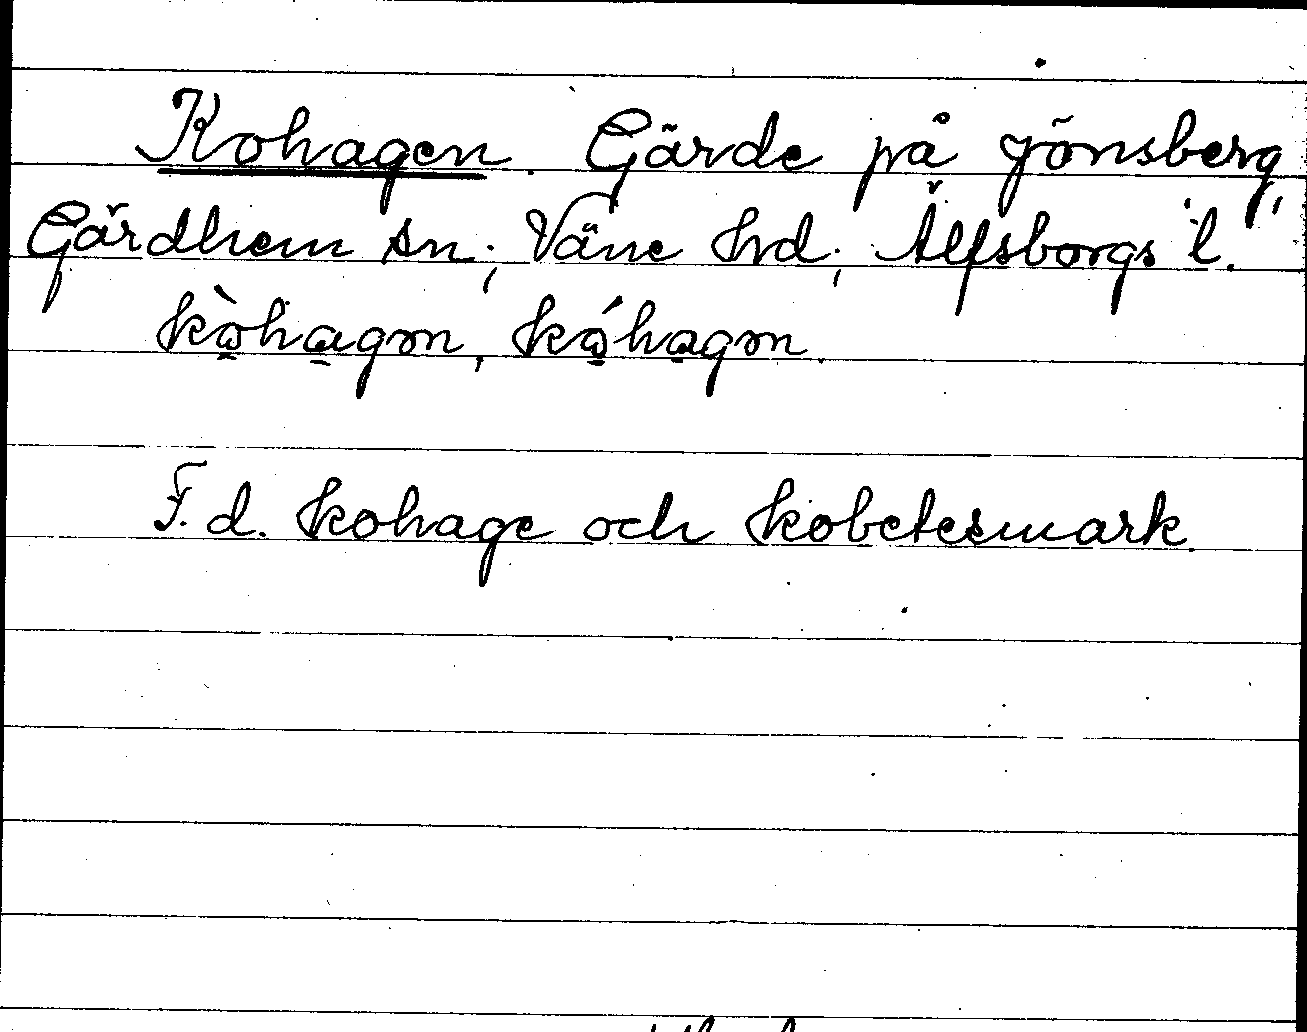 Kohagen. Gärde på Jönsberg,
Gärdhem sn; Väne hd; Älfsborgs l.
kòhagən, kóhagən.
F.d. kohage och kobetesmark.